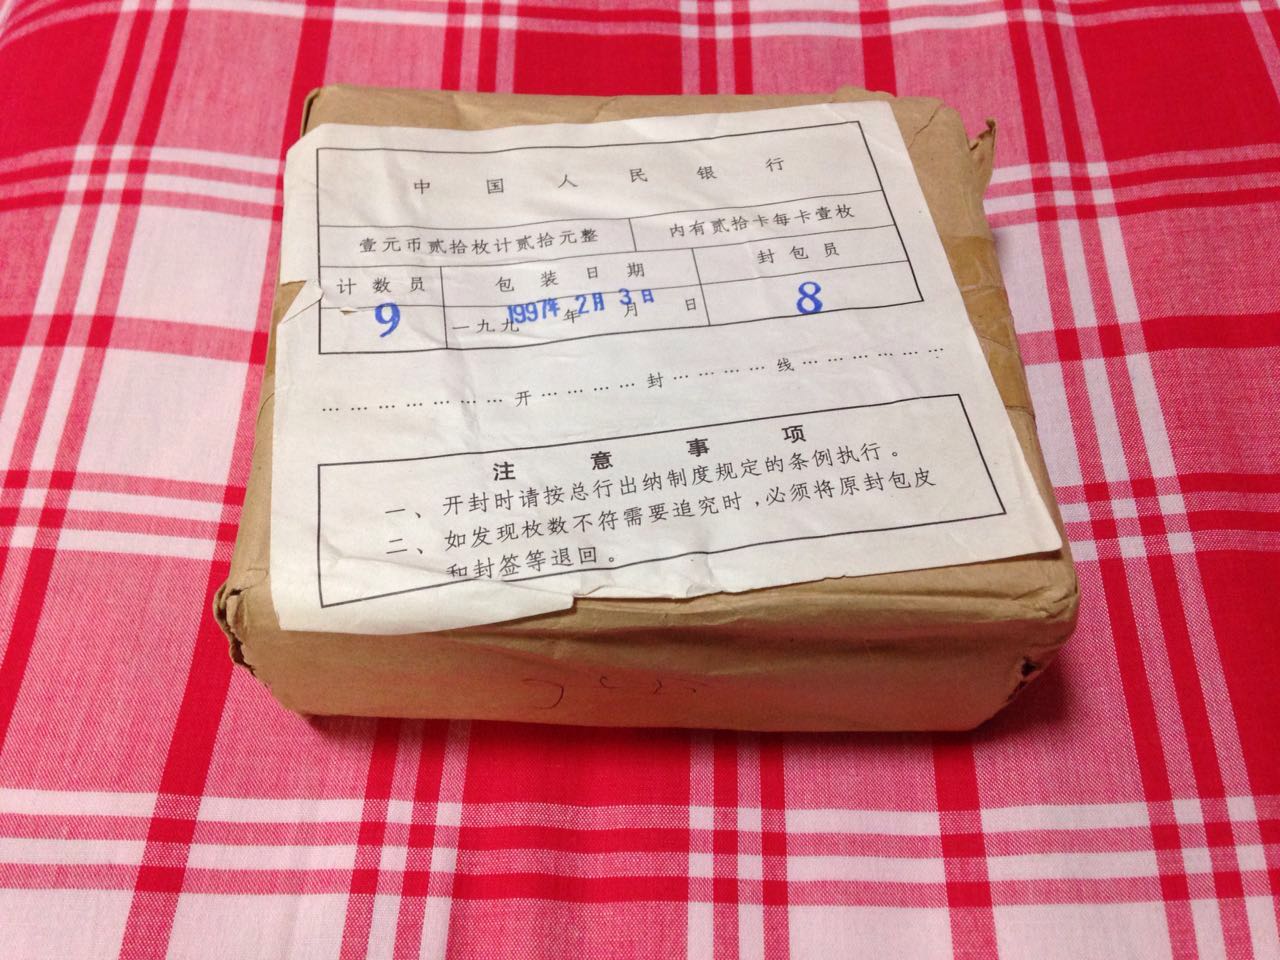 中国人民银行
壹元币贰拾枚计贰拾元整 内有贰拾卡每卡壹枚
计数员 包装日期 封包员
9 一九九 年 月 日 8
1997年2月3日
……………………开…………封…………线………………
注意事项
一、开封时请按总行出纳制度规定的条例执行。
二、如发现枚数不符需要追究时，必须将原封包皮
和封签等退回。